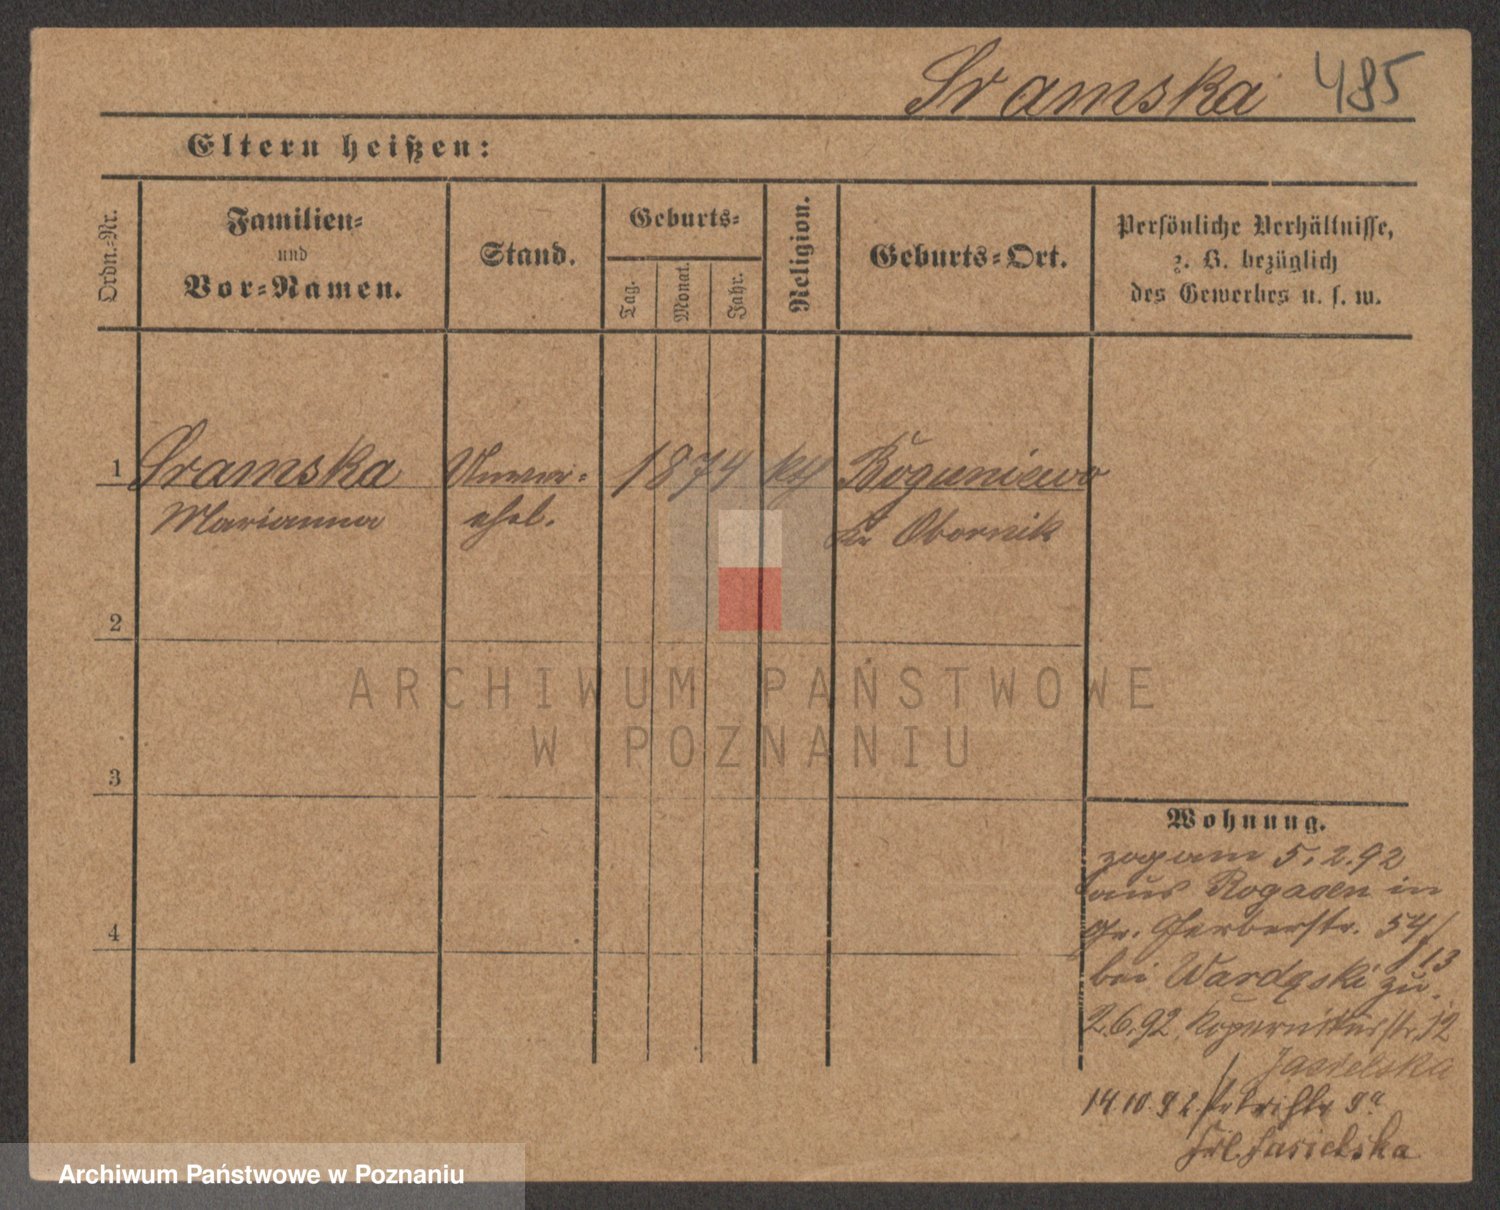 Sramska 485
Eltern heißen:
Ordn.-Nr.
Familien-
und
Vor-Namen.
Stand.
Geburts-
Tag.
Monat.
Jahr.
Religion.
Geburts-Ort.
Persönliche Verhältnisse,
z. B. bezüglich
des Gewerbes u. s. w.
1 Sramska Unver- 1874 kth Boguniewo
Marianna ehel. Kr Obornik
2
3
4
Wohnung.
zog am 5.2.92
aus Rogasen in
Gr. Gerberstr. 54/
13
bei Wardęski zu.
2.6.92 Kopernikusstr. 12
Jasielska
14 10 92 Petristr 9a
Frl Jasielska
ARCHIWUM PAŃSTWOWE
W POZNANIU
Archiwum Państwowe w Poznaniu